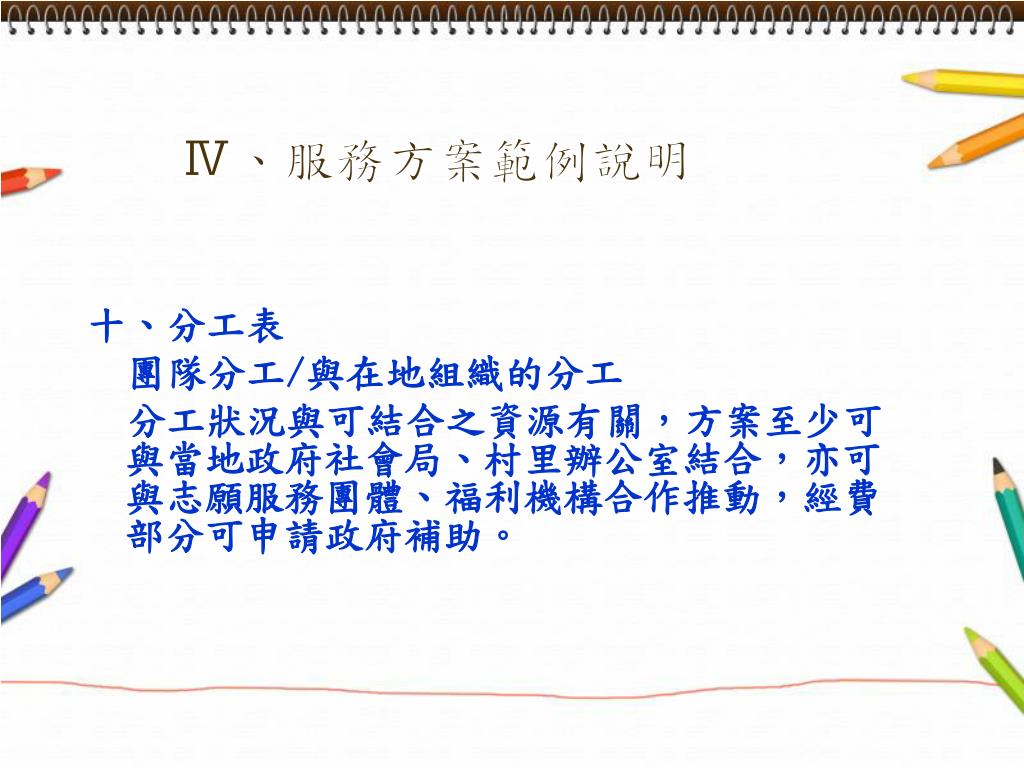 Ⅳ、服務方案範例說明
十、分工表
團隊分工/與在地組織的分工
分工狀況與可結合之資源有關，方案至少可
與當地政府社會局、村里辦公室結合，亦可
與志願服務團體、福利機構合作推動，經費
部分可申請政府補助。